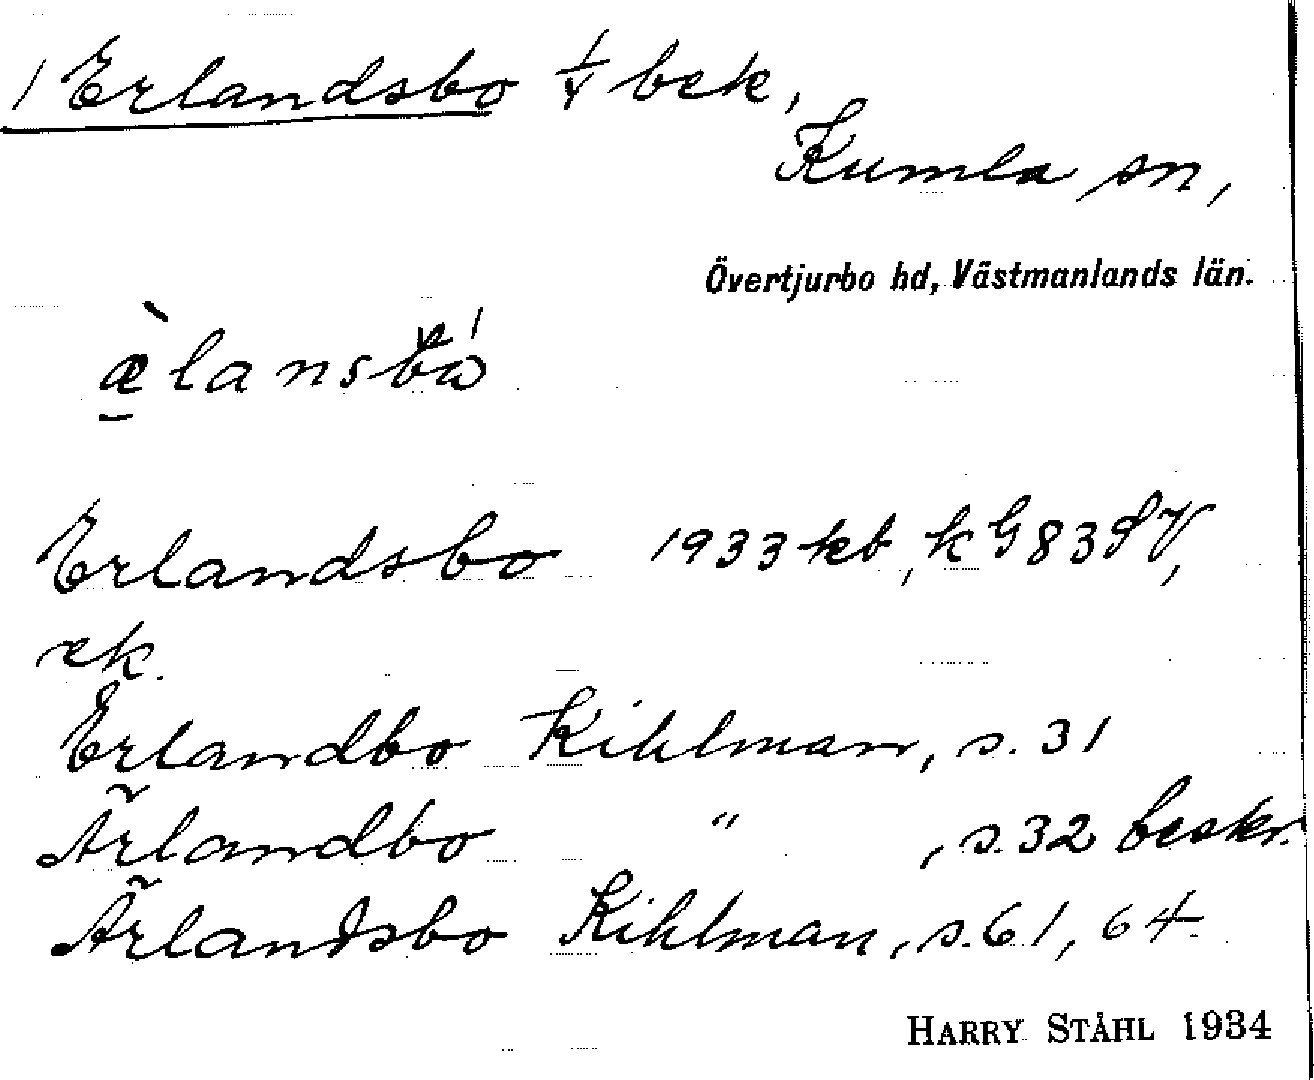 1 Erlandsbo 1/4 bek,
Kumla sn,
Övertjurbo hd, Västmanlands län.
Erlandsbo 1933 kb, k G 83 SV,
ek.
Erlandbo Kihlman, s. 31
Ärlandbo " , s. 32 beskr.
Ärlandsbo Kihlman, s. 61, 64
HARRY STÅHL 1934